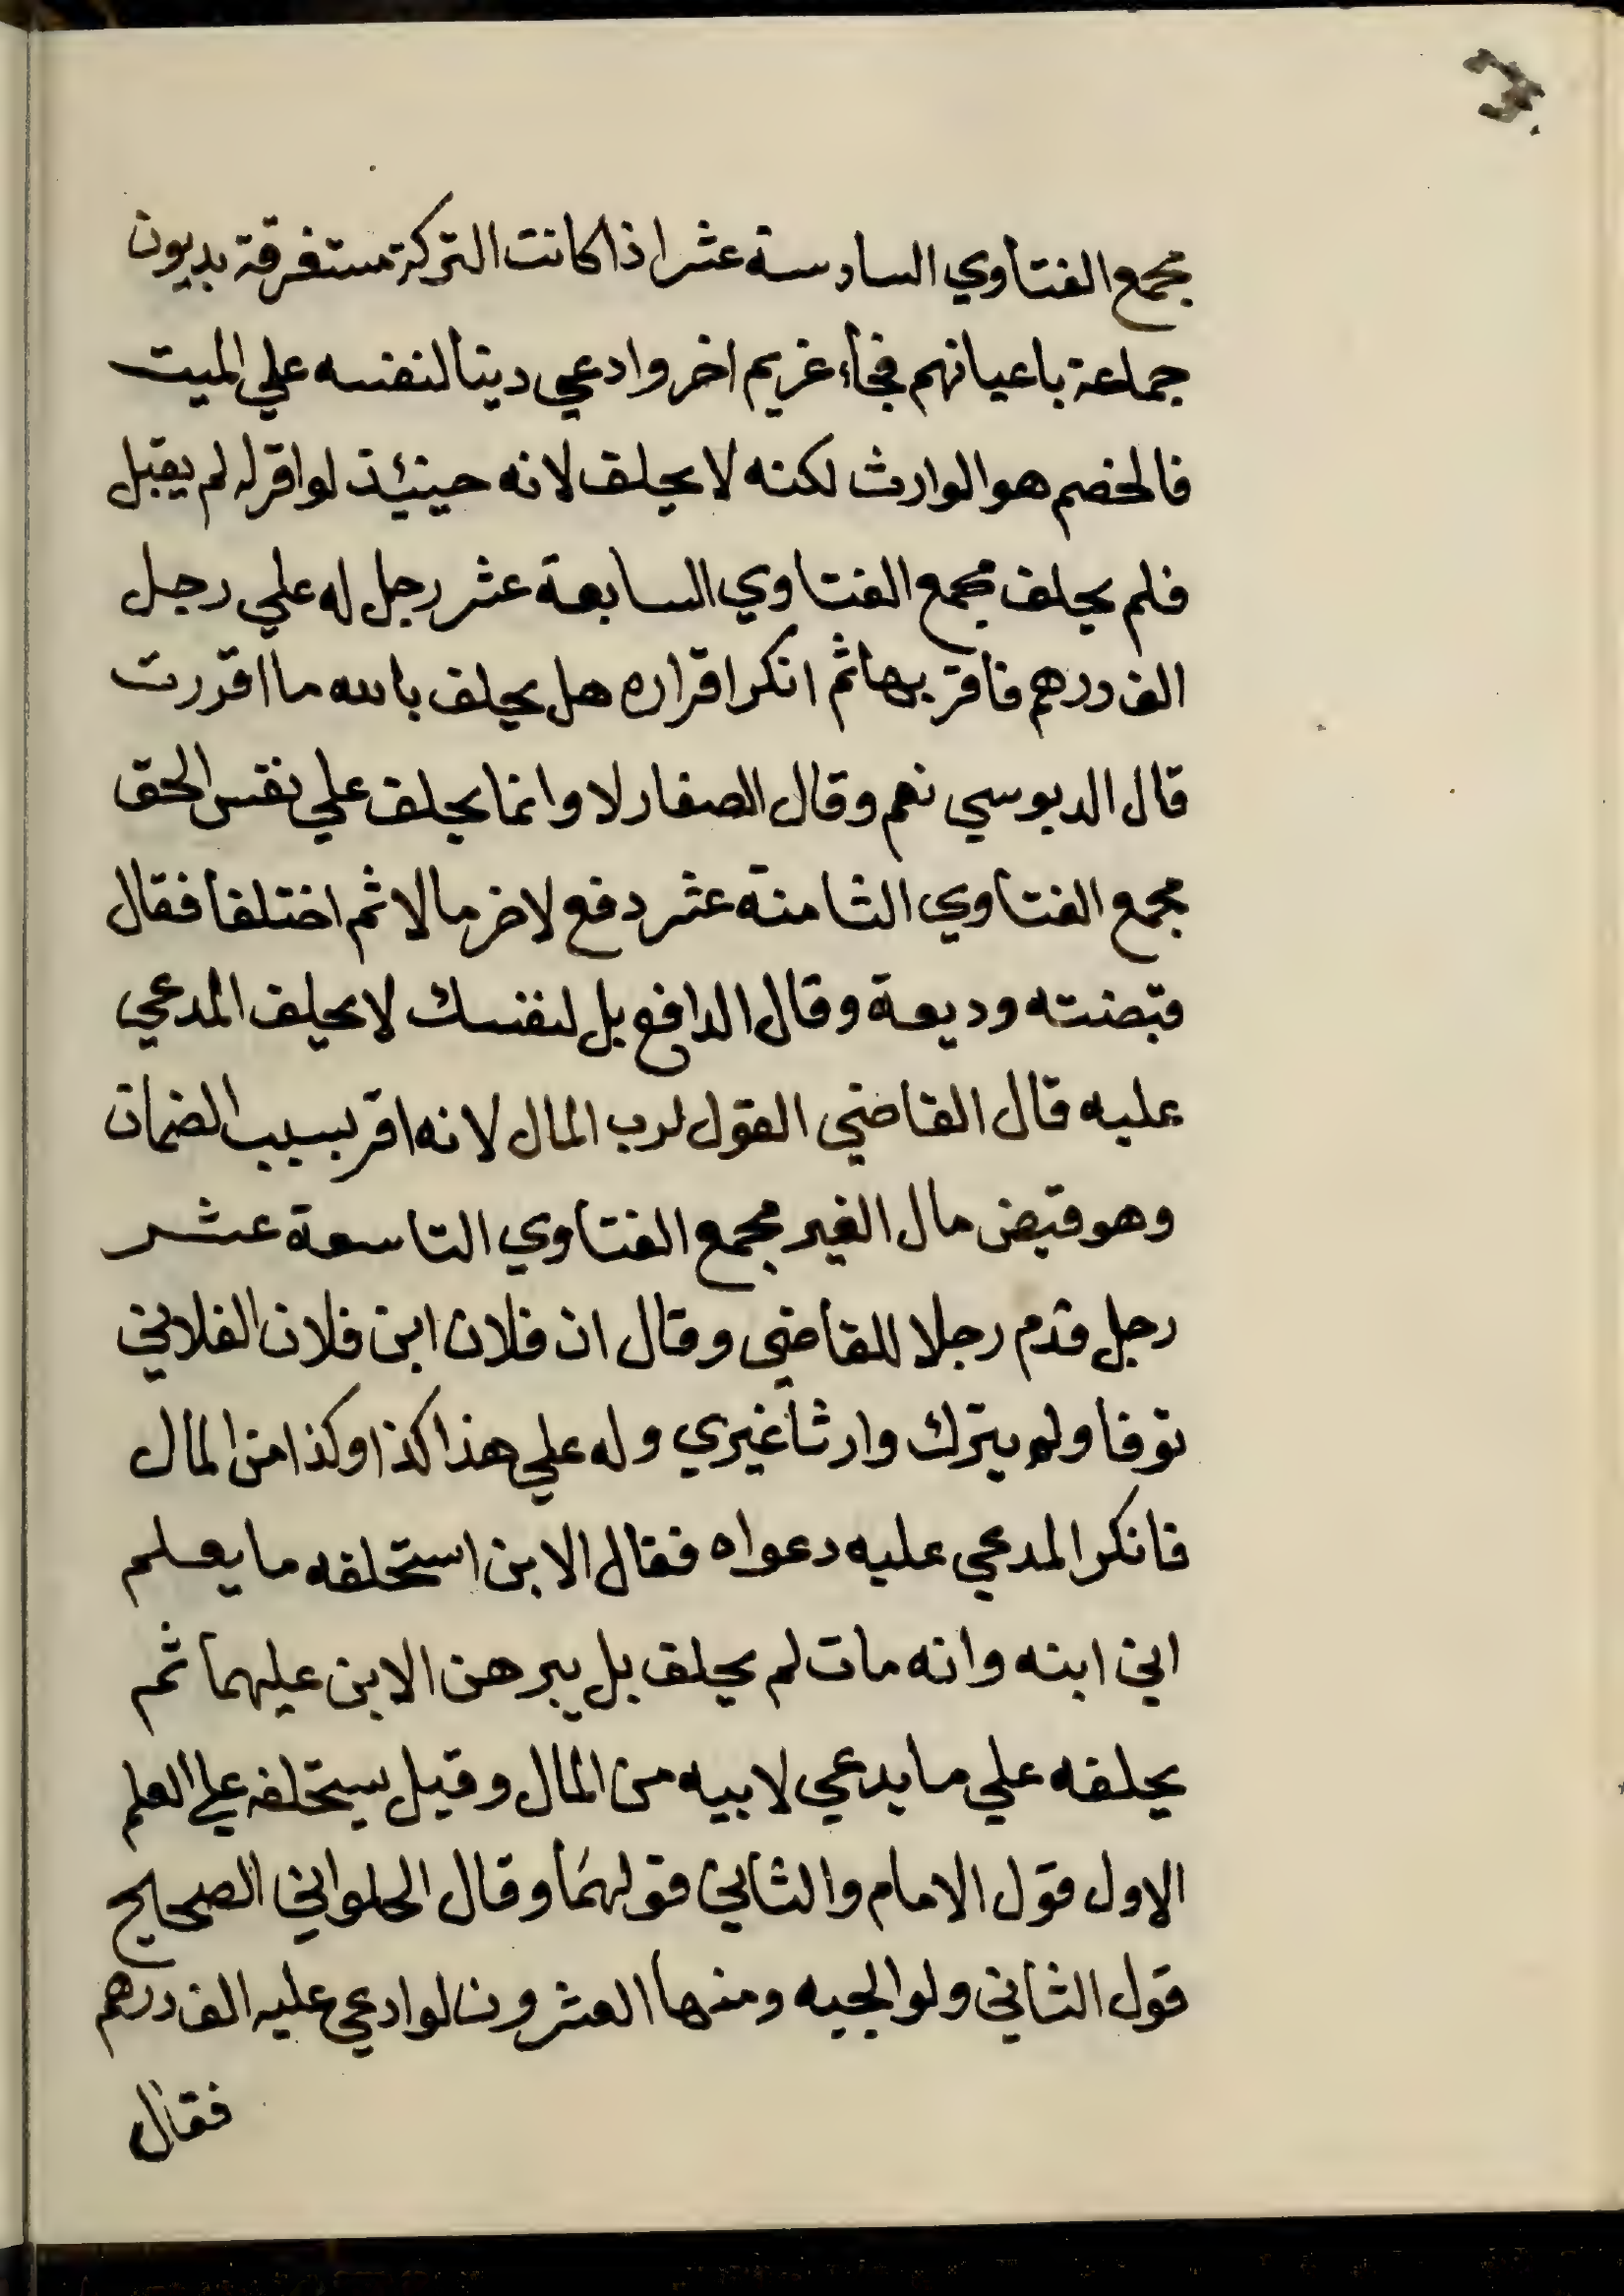 مجمع الفتاوي السادسة عشر اذا كانت التركة مستفرقة بديون
جماعة باعيانهم فجاء غريم اخر وادعي دينا لنفسه علي الميت
فالخصم هو الوارث لكنه لا يحلف لانه حينيئذ لو اقر له لم يقبل
فلم يحلف مجمع الفتاوي السابعة عشر رجل له علي رجل
الف درهم فاقر بها ثم انكر اقراره هل يحلف بالله ما اقررت
قال الدبوسي نعم وقال الصفار لا وانما يحلف علي نفس الحق
مجمع الفتاوي الثامنة عشر دفع لاخر مالا ثم اختلفا فقال
قبضته وديعة وقال الدافع بل لنفسك لا يحلف المدعي
عليه قال القاضي القول لرب المال لانه اقر بسبب الضمان
وهو قبض مال الغير مجمع الفتاوي التاسعة عشر
رجل قدم رجلا للقاضي وقال ان فلان ابن فلان الفلاني
توفا ولم يترك وارثا غيري وله علي هذا كذا وكذا من المال
فانكر المدعي عليه دعواه فقال الابن استحلفه ما يعلم
اني ابنه وانه مات لم يحلف بل يبرهن الابن عليهما ثم
يحلفه علي ما يدعي لابيه من المال وقيل يستحلفه علي العلم
الاول قول الامام والثاني قولهما وقال الحلواني الصحيح
قول الثاني ولوالجيه ومنها العشرون لو ادعي عليه الف درهم
فقال